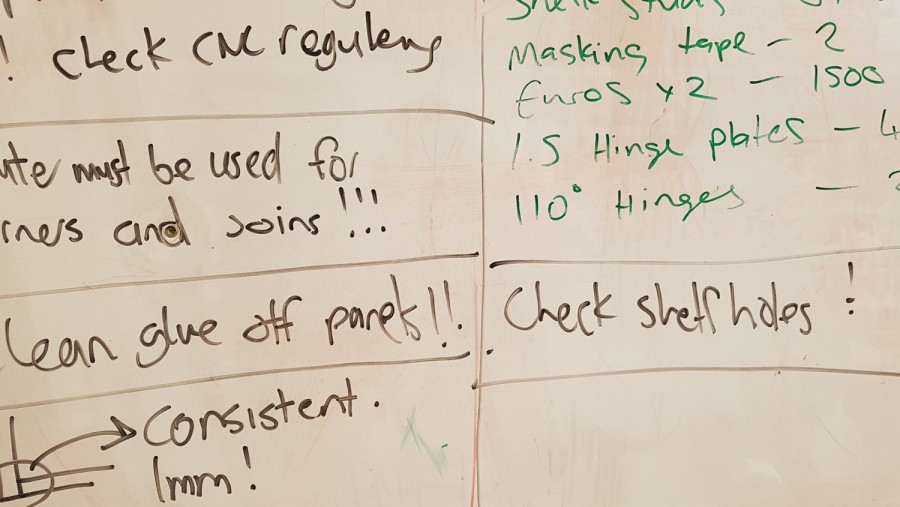 ! Check CNC regulerly
ute must be used for
rners and Joins !!!
lean glue off panels !!.
Consistent.
1mm !
Shelf studs
Masking tape - 2
Euros x2 - 1500
1.5 Hinge plates - 4
110° Hinges -
Check shelf holes !